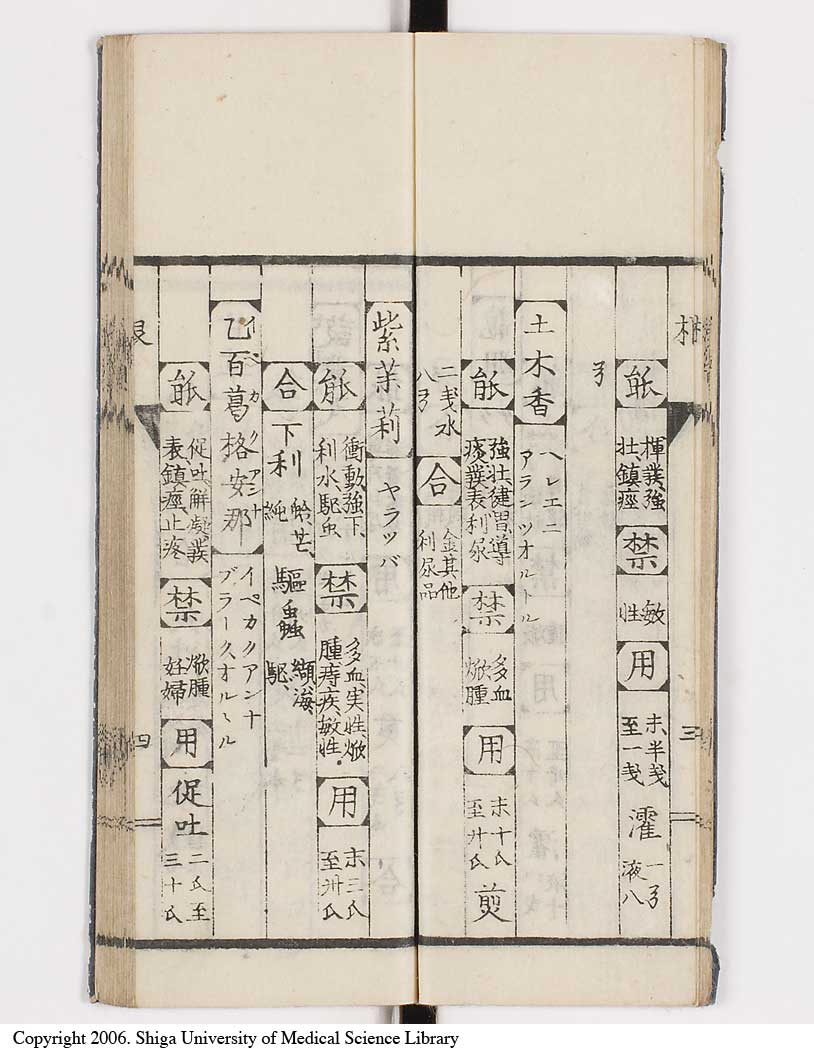 能 揮發、強
壮、鎮痙 禁 敏
性 用 末半戔
至一戔 濯 一ㄢ
液八
土木香 ヘレエニ
アランツオルトル
能 強壮健胃導
痰發表利尿 禁 多血
焮腫 用 末十氏
至卅氏 煎
二戔水
合 金其他
利尿品
紫茉莉 ヤラッバ
能 衝動強下、
利水、駆虫 禁 多血、実性焮
腫痔疾、敏性。 用 末三氏
至卅氏
合 下利 蛤、芒、
純 驅蟲 纈海、
駝、
乙百葛格安那
イペカクアンナ
イペカクアンナ
ブラークオルヽル
能 促吐解凝發
表、鎮痙止疼 禁 焮腫
妊婦 用 促吐 二氏至
三十氏
三
四
Copyright 2006. Shiga University of Medical Science Library